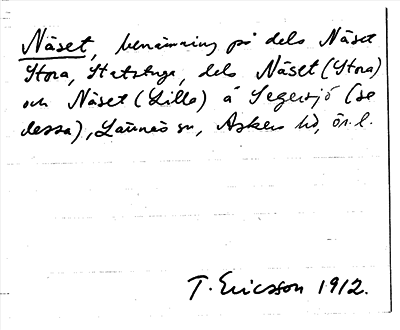 Näset, benämning på dels Näset
Stora, Statstuga, dels Näset (Stora)
och Näset (Lilla) å Segersjö (se
dessa), Lännäs sn, Askers hd, Ör. l.
T. Ericsson 1912.